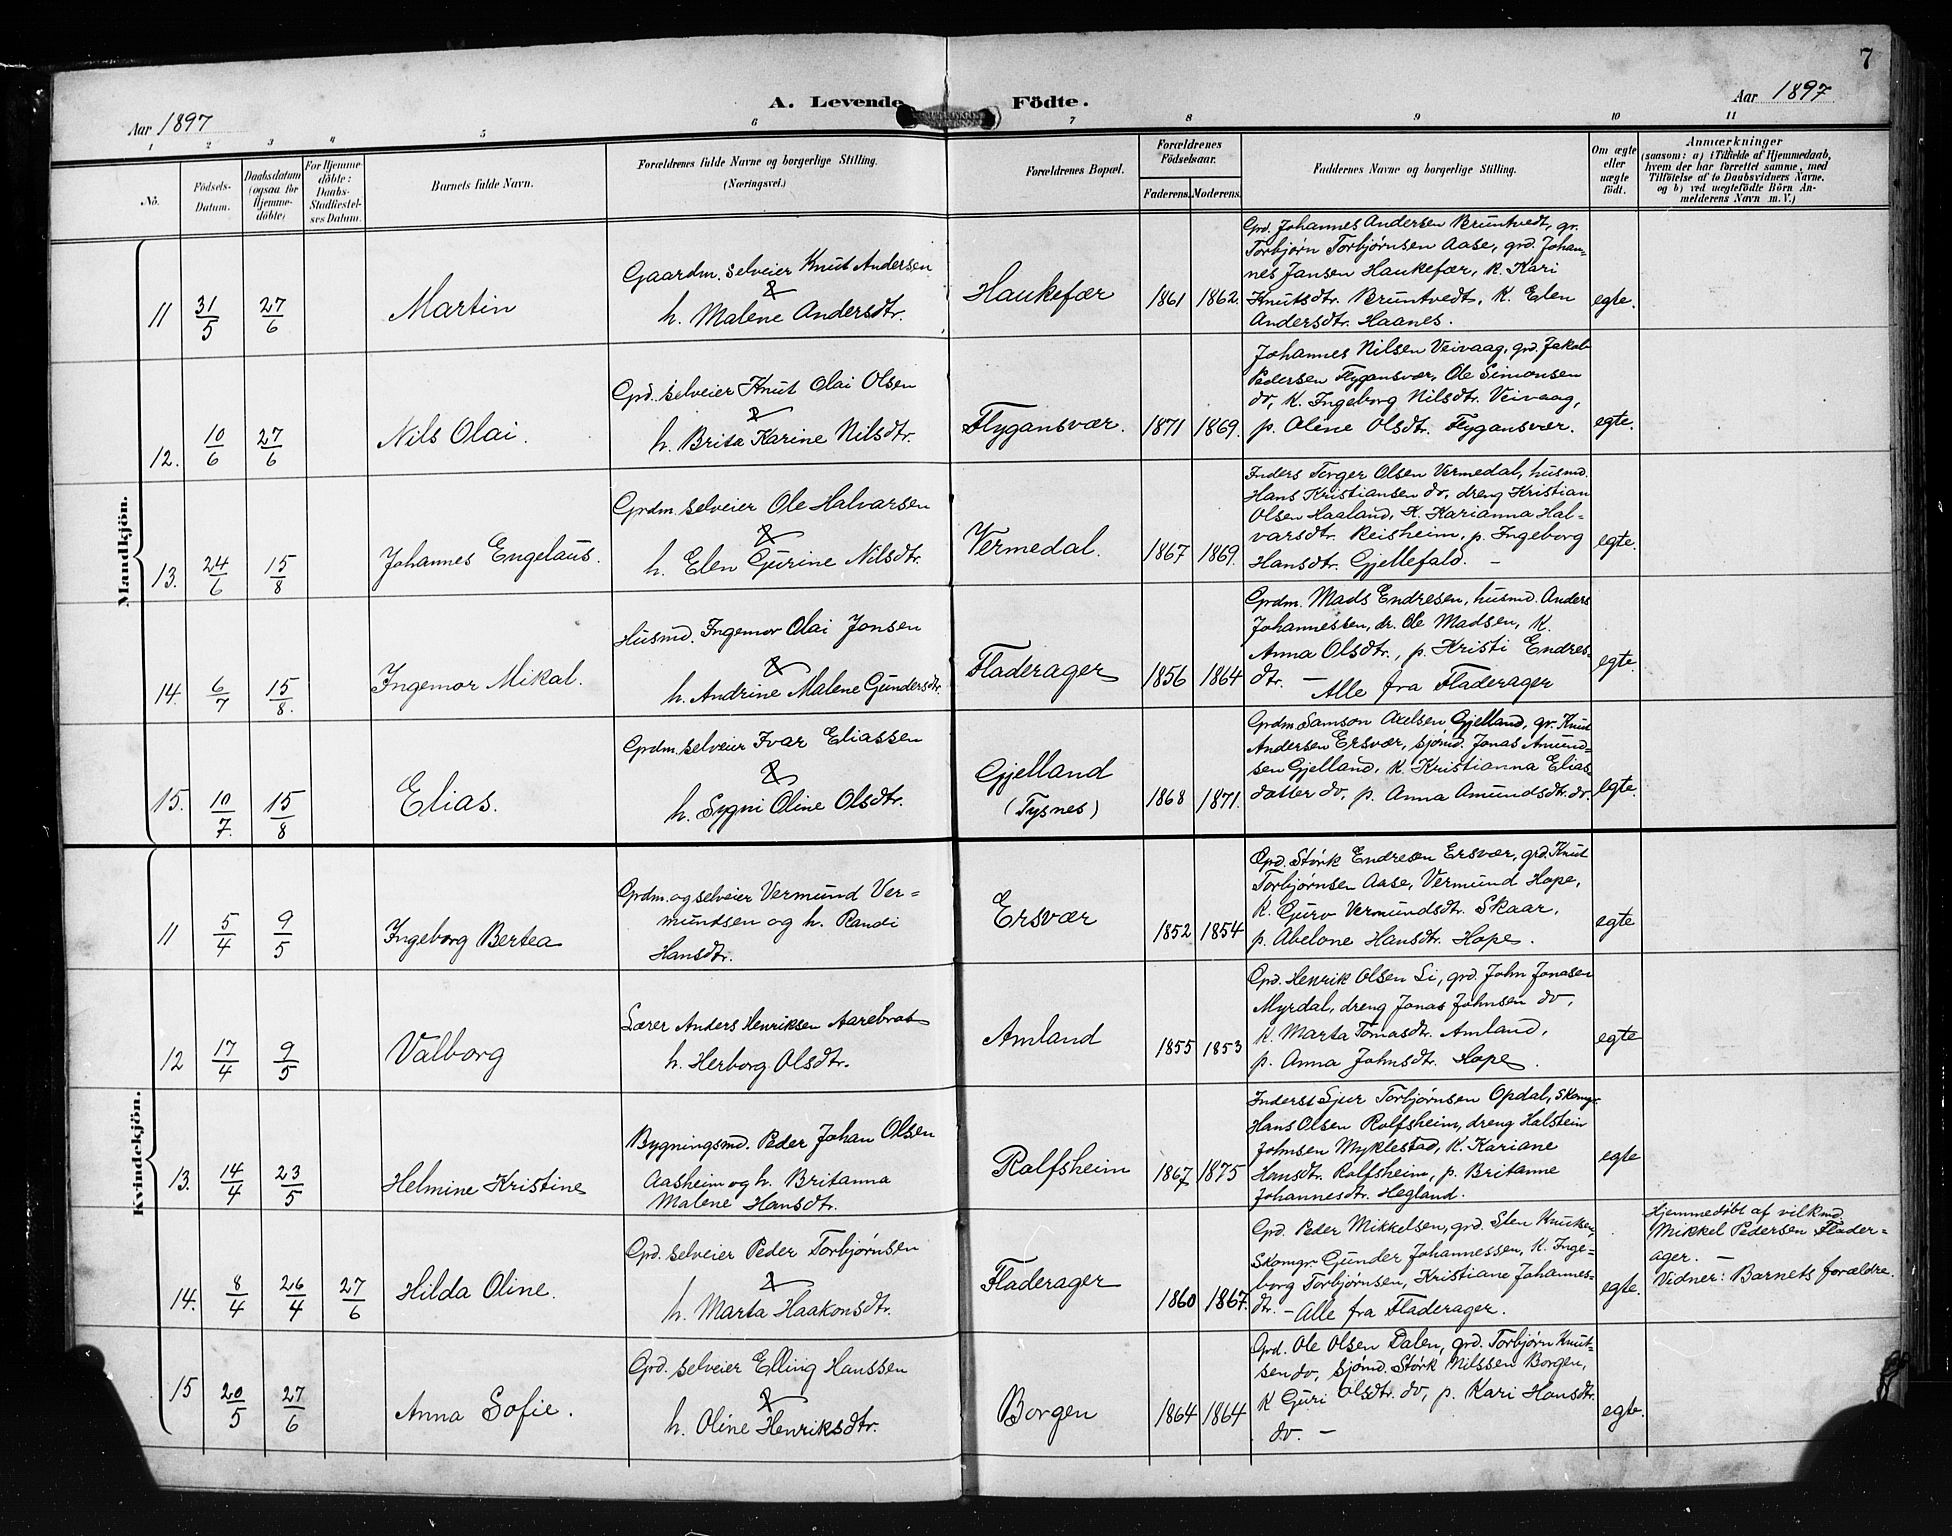 7
Aar 1897
A. Levende Födte.
Aar 1897
1 2 3 4 5 6 7 8 9 10 11
No.
Födsels-
Datum.
Daabsdatum
(ogsaa for
Hjemme-
döbte)
For Hjemme-
döbte:
Daabs-
Stadfæstel-
ses Datum.
Barnets fulde Navn.
Forældrenes fulde Navne og borgerlige Stilling.
(Næringsvei.)
Forældrenes Bopæl.
Forældrenes
Födselsaar.
Faderens. Moderens.
Faddernes Navne og borgerlige Stilling.
Om ægte
eller
uægte
födt.
Anmærkninger
(saasom: a) i Tilfælde af Hjemmedaab,
hvem der har forrettet samme, med
Tilföielse af to Daabsvidners Navne.
og b) ved uægtefödte Börn An-
melderens Navn m. V.)
Mandkjön.
11
31/5
27/6
Martin
Gaardm. selveier Knut Andersen
&
h. Malene Andersdtr.
Haukefær
1861
1862.
Grd. Johannes Andersen Bruntvedt, gr.
Torbjørn Torbjørnsen Aase, grd. Johan-
nes Jansen Haukefær, k. Kari
Knutsdtr. Bruntvedt, k. Elen
Andersdtr. Haanes.
egte.
12.
10/6
27/6
Nils Olai.
Grd. selveier Knut Olai Olsen
&
h. Brita Karine Nilsdtr.
Flygansvær.
1871
1869.
Johannes Nilsen Veivaag, grd. Jakob
Pedersen Flygansvær, Ole Simonsen
do, k. Ingeborg Nilsdtr. Veivaag,
p. Oline Olsdtr. Flygansvær.
egte.
13.
24/6
15/8
Johannes Engelaus.
Grdm. selveier Ole Halvarsen
&
h. Elen Gurine Nilsdtr.
Vermedal.
1867
1869.
Inders Torger Olsen Vermedal, husmd.
Hans Kristiansen do, dreng Kristian
Olsen Haaland, K. Karianna Hal-
varsdtr. Reisheim, p. Ingeborg
Hansdtr. Gjellefald. –
egte.
14.
6/7
15/8.
Ingemor Mikal.
Husmd. Ingemor Olai Jonsen
&
h. Andrine Malene Gundersdtr.
Fladerager
1856
1864
Grdm. Mads Endresen, husmd. Anders
Johannessen, dr. Ole Madsen, K.
Anna Olsdtr., p. Kristi Endres-
dtr. – Alle fra Fladerager
egte.
15.
10/7.
15/8
Elias.
Grdm. selveier Ivar Eliassen
&
h. Sygni Oline Olsdtr.
Gjelland
(Tysnes)
1868
1871.
Grdm. Samson Axelsen Gjelland, gr. Knut
Andersen Ersvær, sjømd. Jonas Amund-
sen Gjelland, K. Kristianna Elias-
datter do, p. Anna Amundsdtr. do.
egte.
Kvindekjön.
11
5/4
9/5
Ingeborg Bertea
Grdm. og selveier Vermund Ver-
mundsen og h. Randi
Hansdtr.
Ersvær
1852
1854
Grd. Størk Endresen Ersvær, grd. Knut
Torbjørnsen Aase, Vermund Hope,
K. Guro Vermundsdtr. Skaar,
p. Abelone Hansdtr. Hope.
egte
12
17/4
9/5
Valborg
Lærer Anders Henriksen Aarebrot
h. Herborg Olsdtr.
Amland
1855
1853
Grd. Henrik Olsen Li, grd. John Jonasen
Myrdal, dreng Jonas Johnsen do,
K. Marta Tomasdtr. Amland,
p. Anna Johnsdtr. Hope.
egte
13.
14/4
23/5
Helmine Kristine
Bygningsmd. Peder Johan Olsen
Aasheim og h. Britanna
Malene Hansdtr.
Rolfsheim
1867
1875
Inderst Sjur Torbjørnsen Opdal, Skomgr
Hans Olsen Rolfsheim, dreng Halstein
Johnsen Myklestad, K. Kariane
Hansdtr. Rolfsheim, p. Britanne
Johannesdtr. Hegland.
egte
14.
8/4
26/4
27/6
Hilda Oline.
Grd. selveier Peder Torbjørnsen
&
h. Marta Haakonsdtr.
Fladerager
1860
1867.
Grd. Peder Mikkelsen, grd. Sten Knutsen,
Skomgr. Gunder Johannessen, K. Inge-
borg Torbjørnsen, Kristiane Johannes-
dtr. – Alle fra Fladerager.
egte.
Hjemmedöbt af vilkmd.
Mikkel Pedersen Flader-
ager. –
Vidner: Barnets forældre.
15
20/5
27/6
Anna Sofie.
Grd. selveier Elling Hanssen
&
h. Oline Henriksdtr.
Borgen
1864
1864
Grd. Ole Olsen Dalen, grd. Torbjørn Knut-
sen do, sjømd. Størk Nilssen Borgen,
K Guri Olsdtr. do, p. Kari Hansdtr.
do. –
egte.